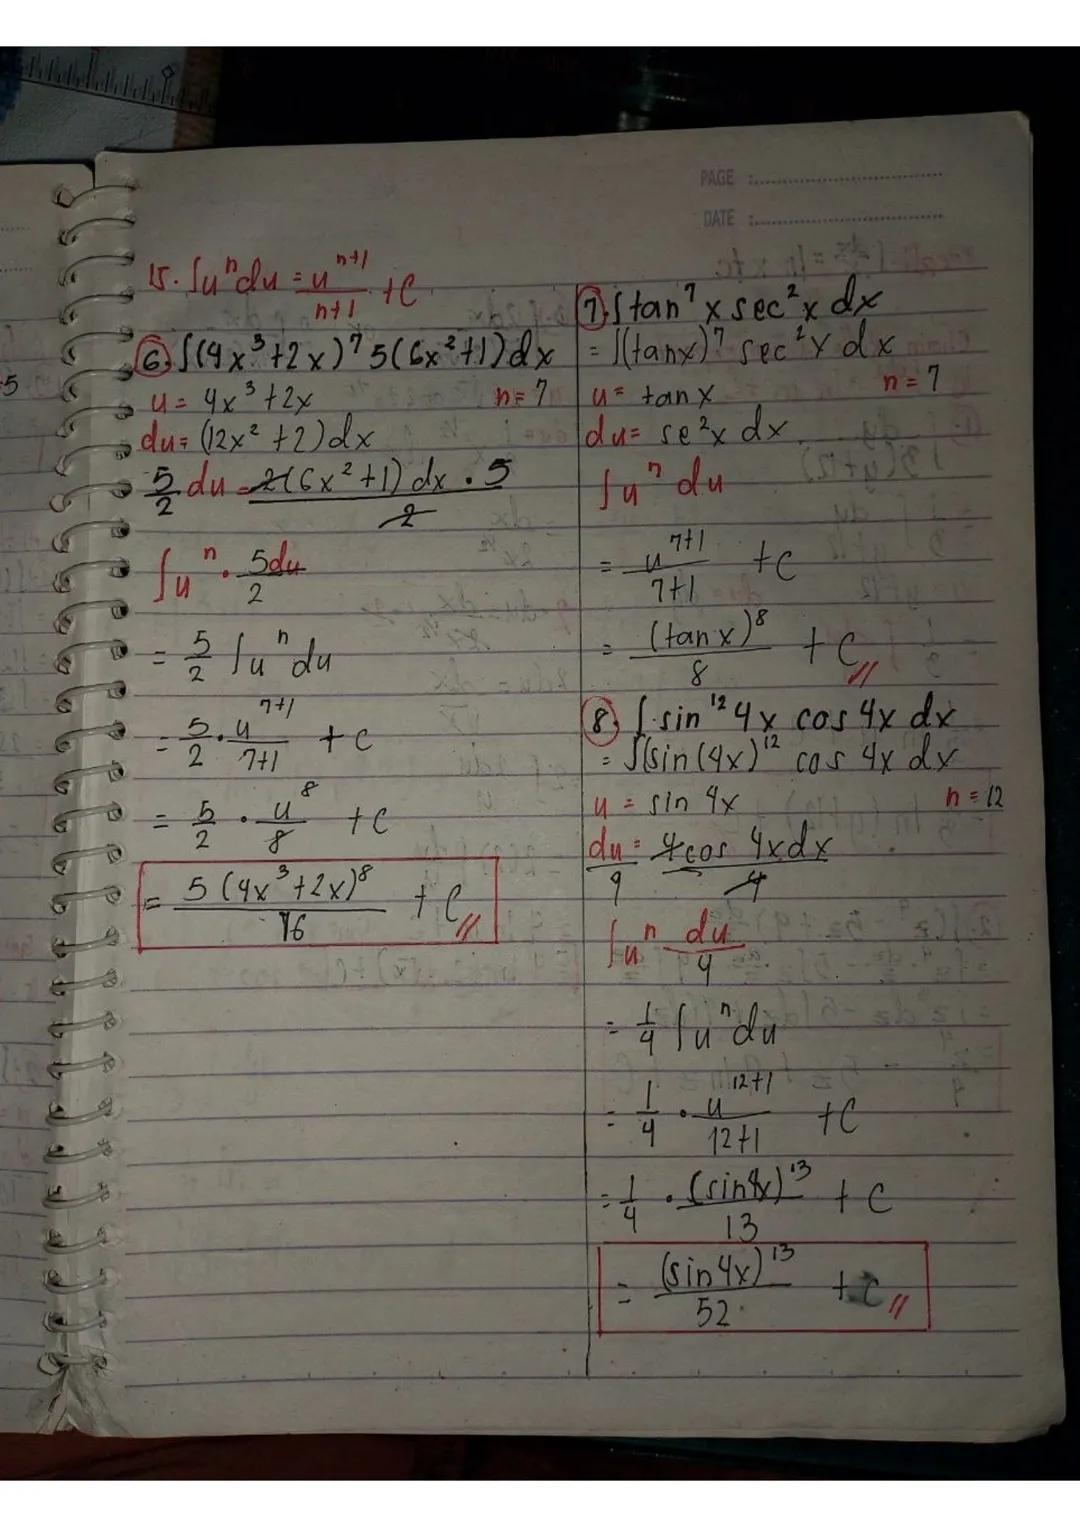 PAGE :
DATE :
15. ∫uⁿdu = u^(n+1)/(n+1) + C
⑥ ∫(4x³+2x)⁷ 5(6x²+1)dx
u = 4x³+2x n=7
du = (12x²+2)dx
5/2 du = 2(6x²+1)dx . 5/2
∫uⁿ · 5du/2
= 5/2 ∫uⁿdu
= 5/2 · u^(7+1)/(7+1) + C
= 5/2 · u⁸/8 + C
= 5(4x³+2x)⁸/16 + C //
⑦ ∫tan⁷x sec²x dx
= ∫(tanx)⁷ sec²x dx
u = tan x n=7
du = se²x dx
∫uⁿ du
= u^(7+1)/(7+1) + C
= (tan x)⁸/8 + C //
⑧ ∫ sin¹² 4x cos 4x dx
= ∫(sin(4x)¹² cos 4x dx
u = sin 4x n=12
du/4 = 4cos 4xdx/4
∫uⁿ du/4
= 1/4 ∫uⁿdu
= 1/4 · u^(12+1)/(12+1) + C
= 1/4 · (sin4x)¹³/13 + C
= (sin4x)¹³/52 + C //